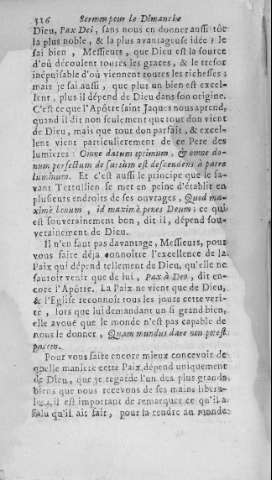 316 Sermon pour le Dimanche
Dieu, Pax Dei, sans nous en donner aussi-tôt
la plus noble, & la plus avantageuse idée : Je
sai bien, Messieurs, que Dieu est la source
d'où découlent toutes les graces, & le tresor
inépuisable d'où viennent toutes les richesses ;
mais je sai aussi, que plus un bien est excel-
lent, plus il dépend de Dieu dans son origine.
C'est ce que l'Apôtre saint Jaques nous aprend,
quand il dit non seulement que tout don vient
de Dieu, mais que tout don parfait, & excel-
lent vient particulierement de ce Pere des
lumieres : Omne datum optimum, & omne do-
num perfectum de sursum est descendens à patre
luminum. Et c'est aussi le principe que le sa-
vant Tertullien se met en peine d'établir en
plusieurs endroits de ses ouvrages, Quod ma-
ximè bonum, id maximè penes Deum ; ce qui
est souverainement bon, dit il, dépend sou-
verainement de Dieu.
Il n'en faut pas davantage, Messieurs, pour
vous faire déja connoître l'excellence de la
Paix qui dépend tellement de Dieu, qu'elle ne
sauroit venir que de lui, Pax à Deo, dit en-
core l'Apôtre. La Paix ne vient que de Dieu,
& l'Eglise reconnoît tous les jours cette veri-
té, lors que lui demandant un si grand bien,
elle avoue que le monde n'est pas capable de
nous le donner, Quam mundus dare non potest
pacem.
Pour vous faire encore mieux concevoir de
quelle maniere cette Paix dépend uniquement
de Dieu, que je regarde l'un des plus grands
biens que nous recevons de ses mains libera-
les, il est important de remarquer ce qu'il a
falu qu'il ait fait, pour la rendre au monde